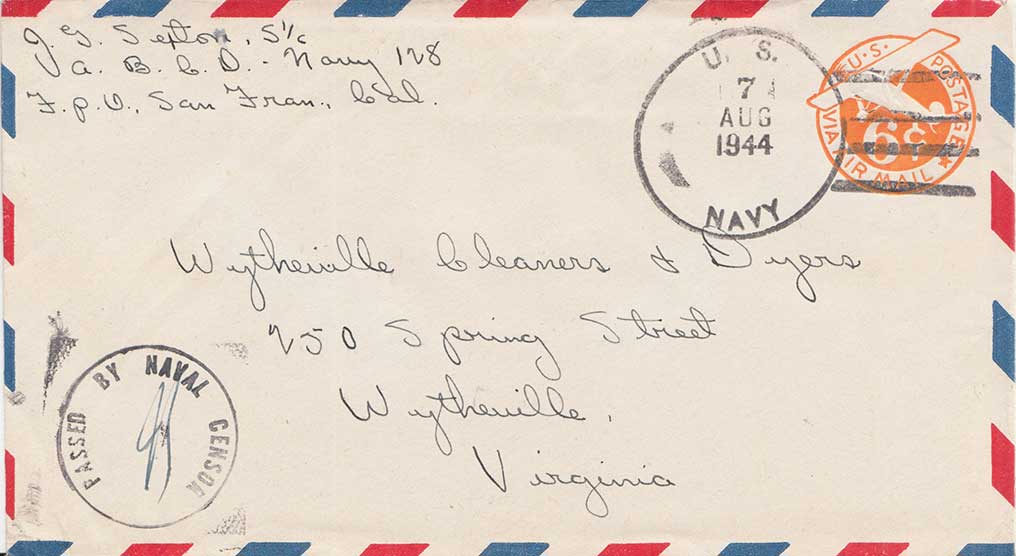 J. G. Sexton, S 1/c
A. B. C. D. - Navy 128
F.P.O., San Fran., Cal.
U. S.
7
AUG
1944
NAVY
U.S. POSTAGE
VIA AIR MAIL
6¢
Wytheville Cleaners & Dyers
250 Spring Street
Wytheville,
Virginia
PASSED BY NAVAL CENSOR